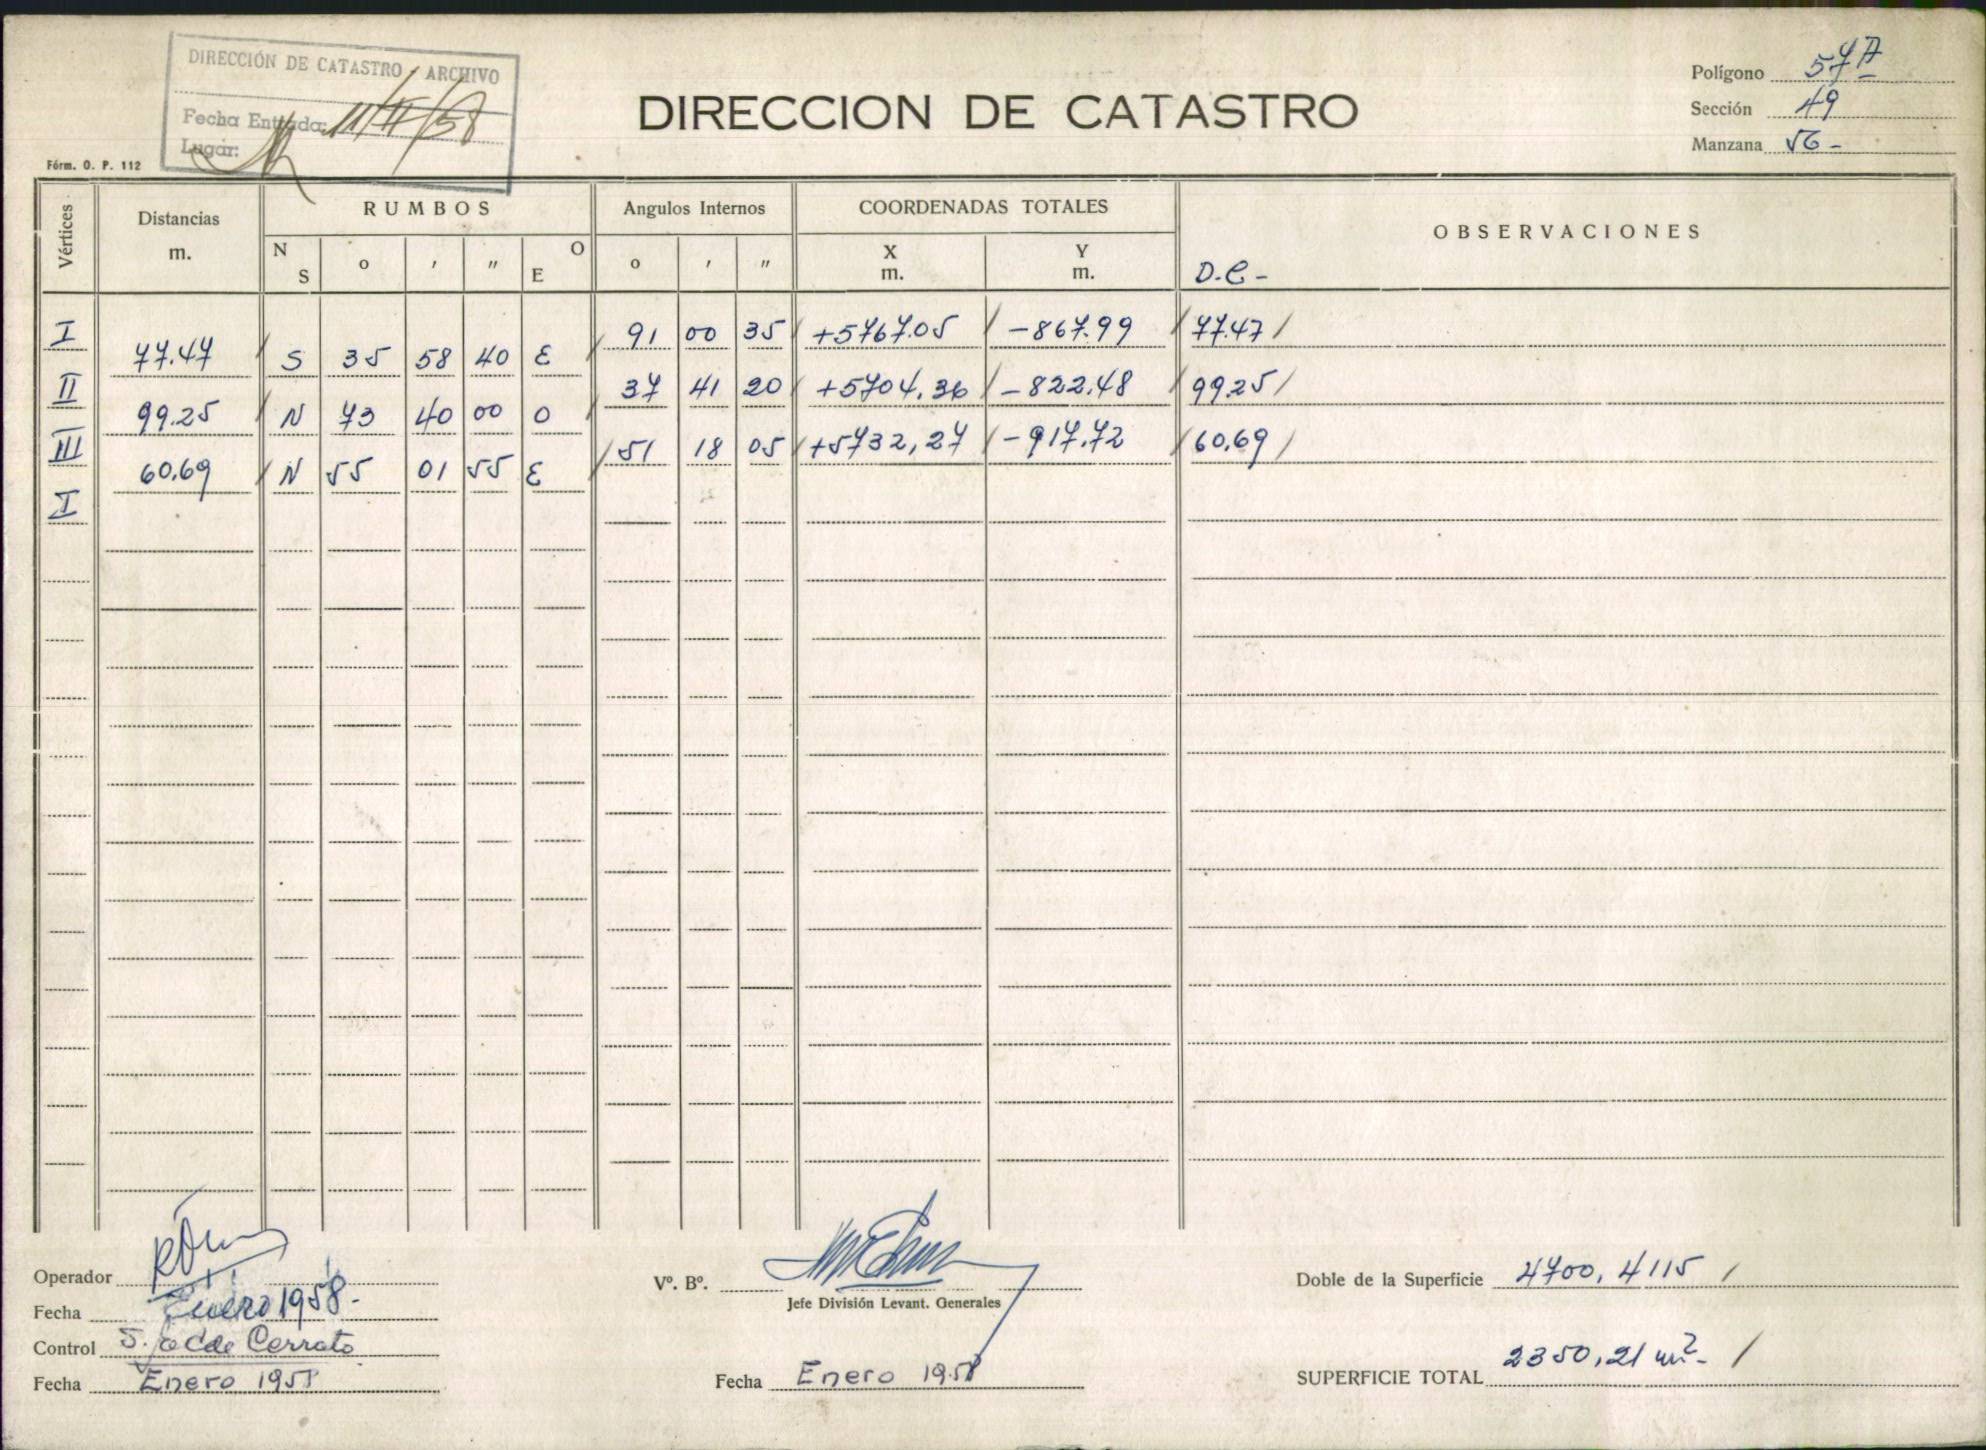 DIRECCIÓN DE CATASTRO ARCHIVO
Fecha Entrada: 11/II/58
Lugar:
DIRECCION DE CATASTRO
Polígono 57A
Sección 49
Manzana 56 -
Fórm. O. P. 112
Vértices Distancias m. RUMBOS Angulos Internos COORDENADAS TOTALES OBSERVACIONES
N S o ' " O E o ' " X m. Y m. D.C-
I 91 00 35 +5767.05 -867.99 77.47
77.47 S 35 58 40 E
II 37 41 20 +5704.36 -822.48 99.25
99.25 N 73 40 00 O
III 51 18 05 +5732,27 -917.72 60.69
60.69 N 55 01 55 E
I
Operador
Fecha Enero 1958.
Control Cerrato
Fecha Enero 1958
Vº. Bº.
Jefe División Levant. Generales
Fecha Enero 1958
Doble de la Superficie 4700,4115
SUPERFICIE TOTAL 2350,21 m².